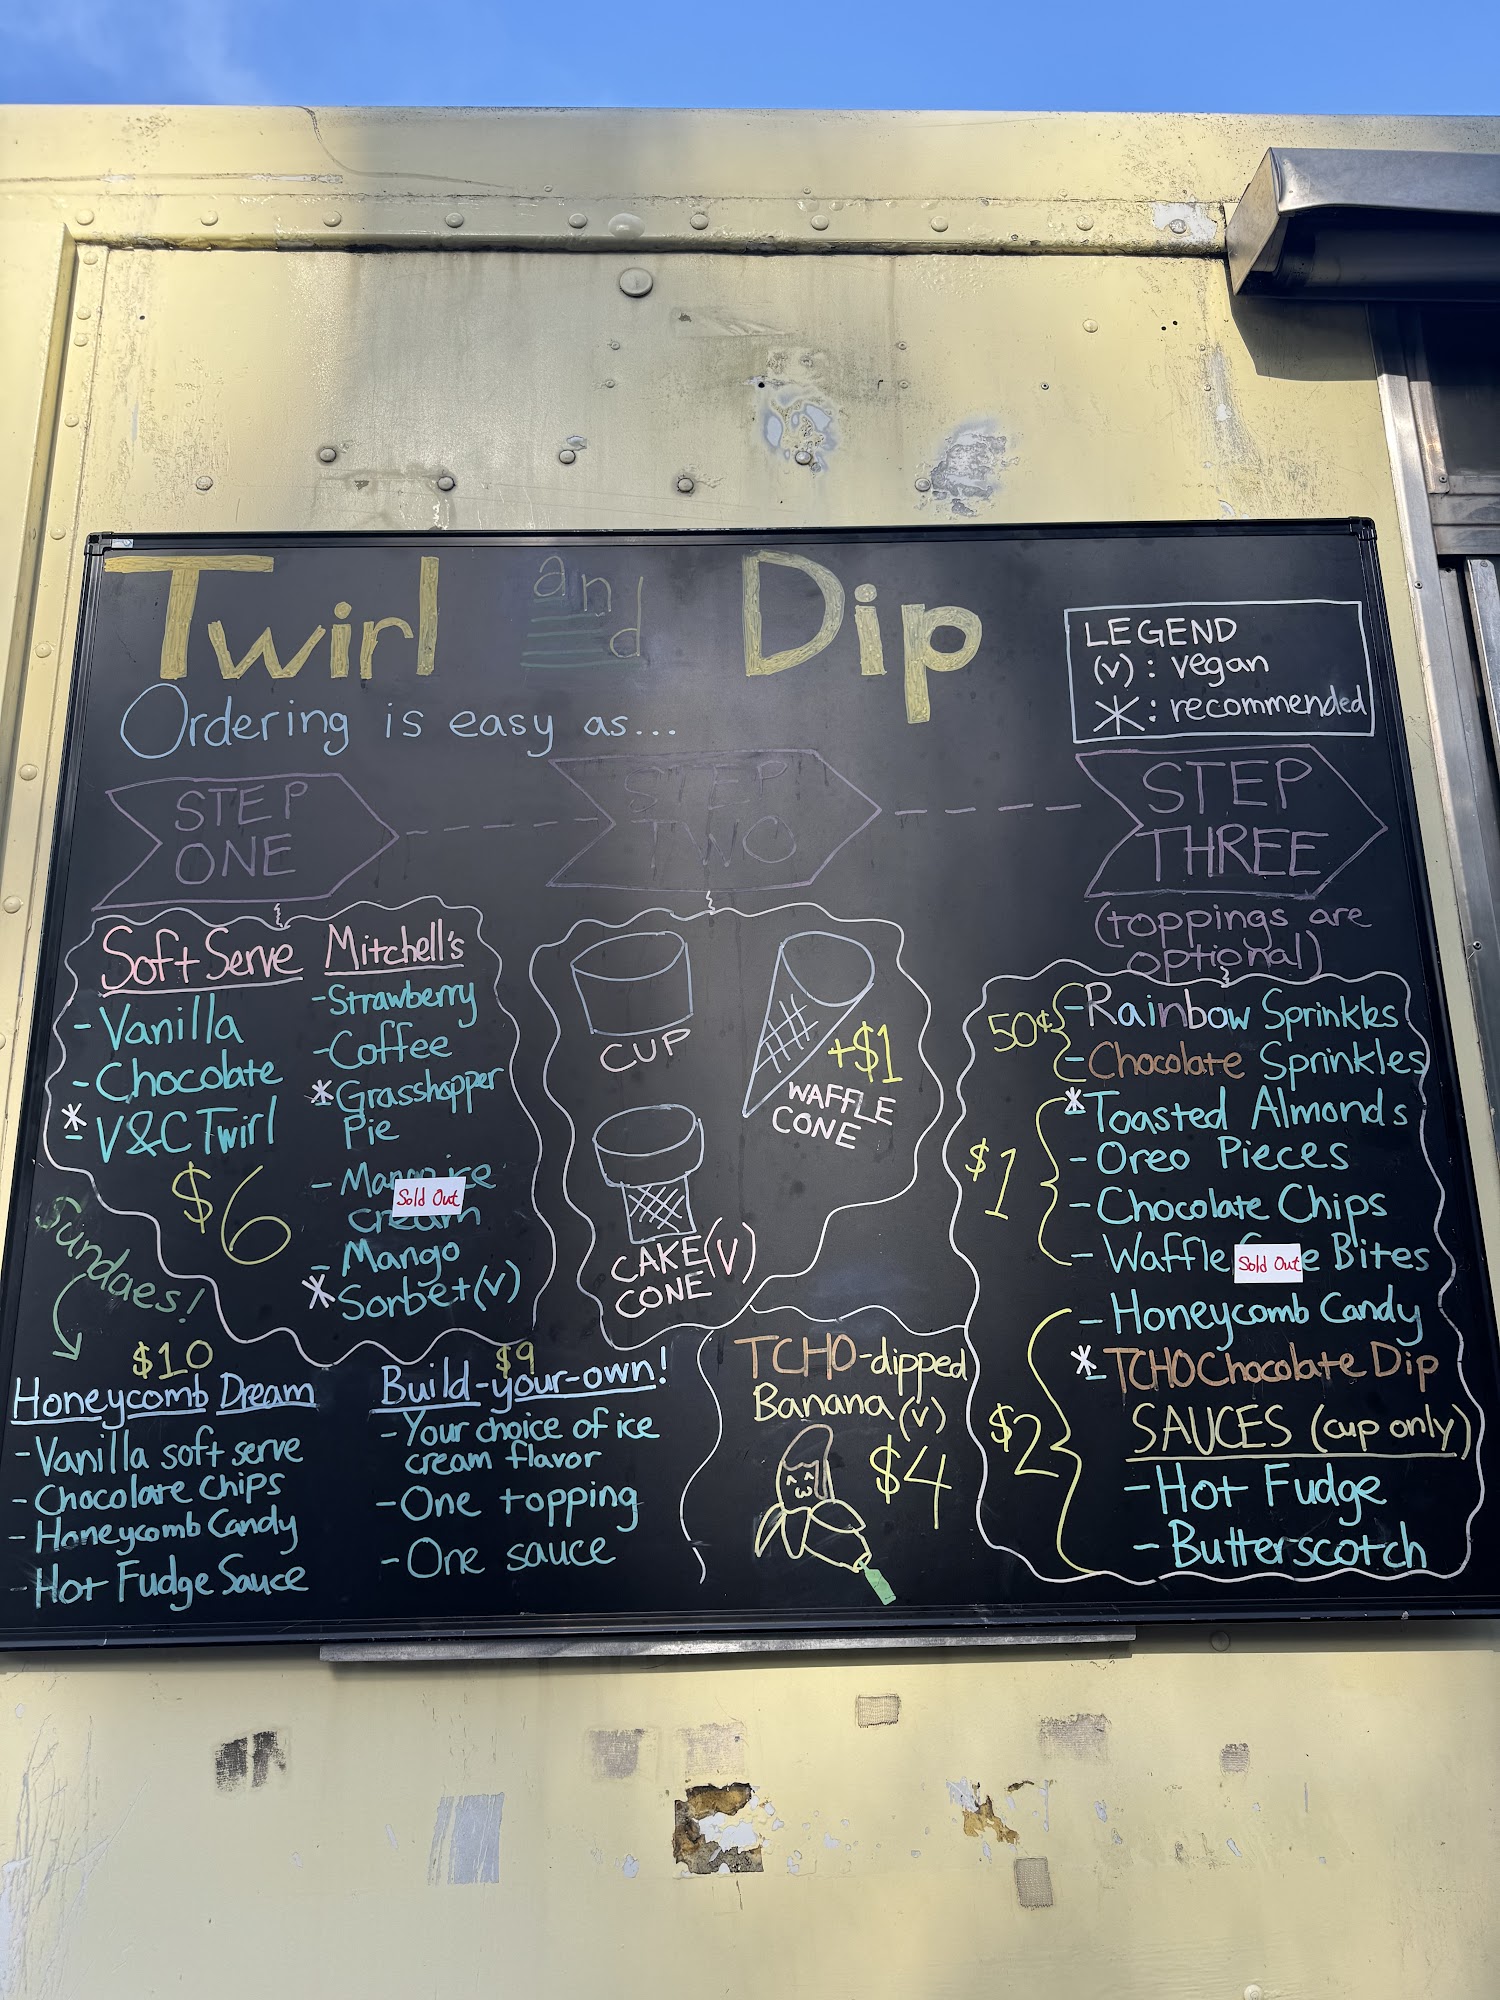 Twirl and Dip
Ordering is easy as...
LEGEND
(v) : vegan
* : recommended
STEP
ONE
Soft Serve
- Vanilla
- Chocolate
*- V&C Twirl
$6
Mitchell's
- Strawberry
- Coffee
*- Grasshopper
Pie
- Mango ice
cream
Sold Out
- Mango
* Sorbet (v)
STEP
TWO
CUP
+$1
WAFFLE
CONE
CAKE (V)
CONE
STEP
THREE
(toppings are
optional)
50¢
- Rainbow Sprinkles
- Chocolate Sprinkles
$1
*- Toasted Almonds
- Oreo Pieces
- Chocolate Chips
- Waffle Cone Bites
Sold Out
$2
- Honeycomb Candy
*- TCHO Chocolate Dip
SAUCES (cup only)
- Hot Fudge
- Butterscotch
Sundaes!
$10
Honeycomb Dream
- Vanilla soft serve
- Chocolate Chips
- Honeycomb Candy
- Hot Fudge Sauce
$9
Build-your-own!
- Your choice of ice
cream flavor
- One topping
- One sauce
TCHO-dipped
Banana (v)
$4